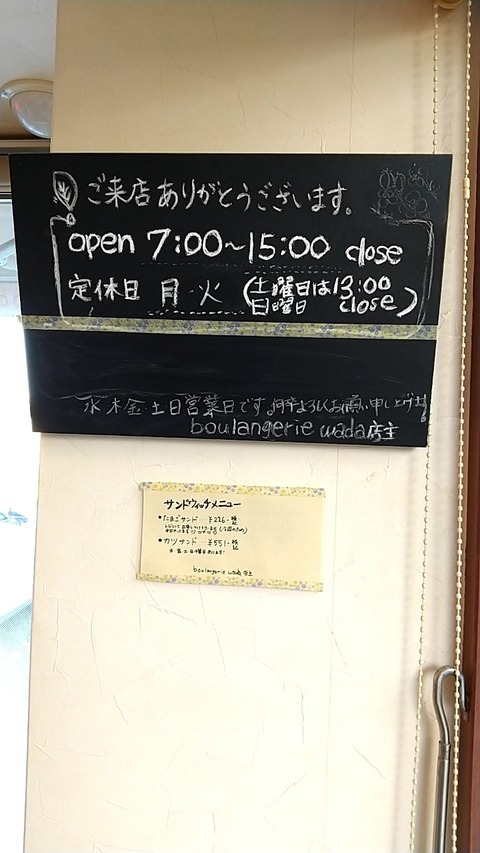 ご来店ありがとうございます。
open 7:00~15:00 close
定休日 月・火 (土曜日は13:00
日曜日 close)
水 木 金・土日営業日です。何卒よろしくお願い申し上げます!
boulangerie wada店主
サンドウィッチメニュー
・たまごサンド ¥226-
・カツサンド ¥551-
boulangerie wada 店主